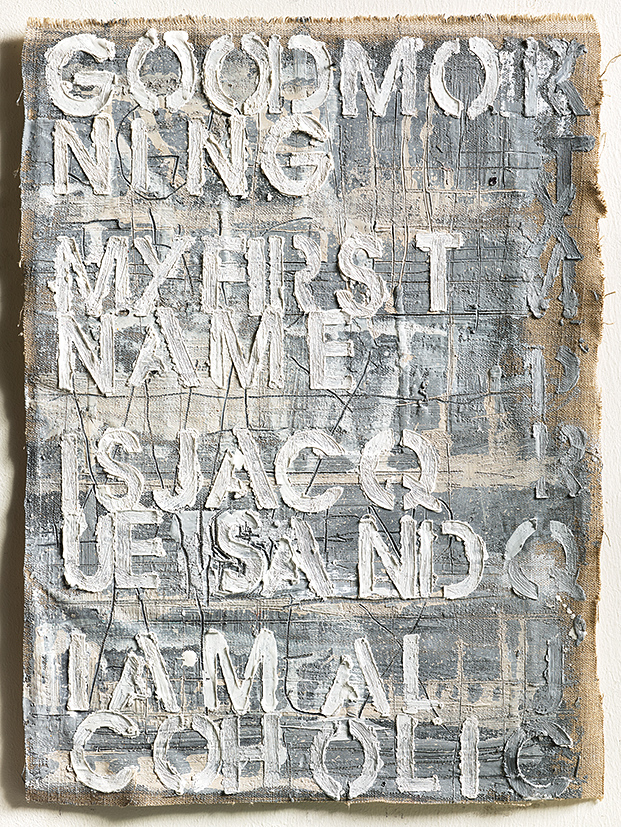 GOODMOR
NING
MYFIRST
NAME
ISJACQ
UESAND
IAMAL
COHOLIC